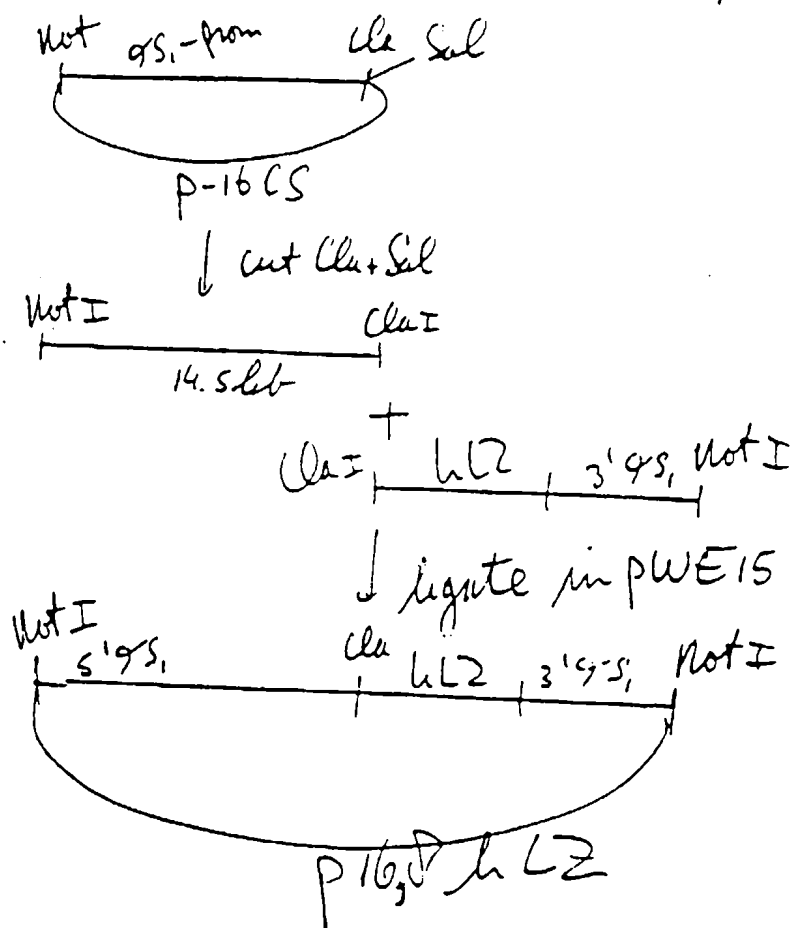 Not αS₁-prom Cla Sal
p-16 CS
cut Cla + Sal
Not I Cla I
14.5 kb
+
Cla I hLZ 3' αS₁ Not I
ligate in pWE15
Not I Cla Not I
5' αS₁ hLZ 3' αS₁
p16,8 hLZ